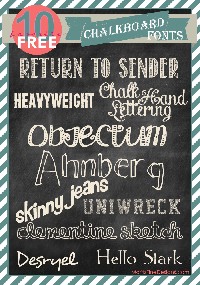 10
FREE
CHALKBOARD
FONTS
RETURN TO SENDER
HEAVYWEIGHT
Chalk Hand
Lettering
Objectum
Ahnberg
skinny jeans
UNIWRECK
clementine sketch
Desyrel
Hello Stark